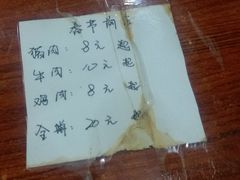 春节前后
猪肉：8元 起
牛肉：10元 起
鸡肉：8元 起
全拼：20元 起